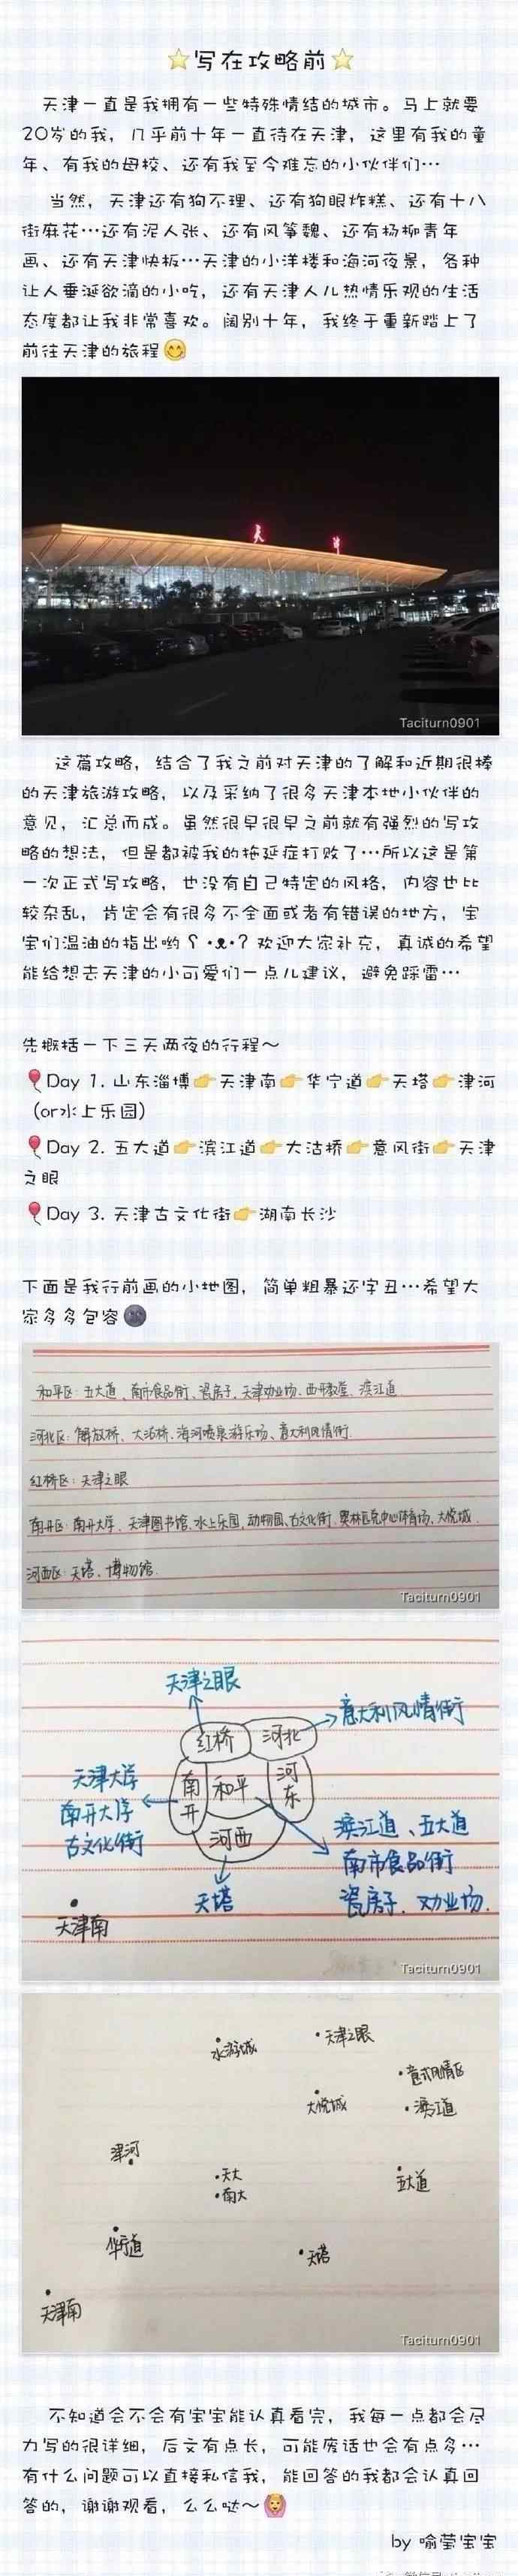 写在攻略前
天津一直是我拥有一些特殊情结的城市。马上就要
20岁的我，几乎前十年一直待在天津，这里有我的童
年、有我的母校、还有我至今难忘的小伙伴们…
当然，天津还有狗不理、还有狗眼炸糕、还有十八
街麻花…还有泥人张、还有风筝魏、还有杨柳青年
画、还有天津快板…天津的小洋楼和海河夜景，各种
让人垂涎欲滴的小吃，还有天津人儿热情乐观的生活
态度都让我非常喜欢。阔别十年，我终于重新踏上了
前往天津的旅程😋
天 津
Taciturn0901
这篇攻略，结合了我之前对天津的了解和近期很棒
的天津旅游攻略，以及采纳了很多天津本地小伙伴的
意见，汇总而成。虽然很早很早之前就有强烈的写攻
略的想法，但是都被我的拖延症打败了…所以这是第
一次正式写攻略，也没有自己特定的风格，内容也比
较杂乱，肯定会有很多不全面或者有错误的地方，宝
宝们温油的指出哟ʕ •ᴥ•ʔ 欢迎大家补充，真诚的希望
能给想去天津的小可爱们一点儿建议，避免踩雷…
先概括一下三天两夜的行程～
🎈Day 1. 山东淄博👉天津南👉华宁道👉天塔👉津河
（or水上乐园）
🎈Day 2. 五大道👉滨江道👉大沽桥👉意风街👉天津
之眼
🎈Day 3. 天津古文化街👉湖南长沙
下面是我行前画的小地图，简单粗暴还字丑…希望大
家多多包容🌚
和平区：五大道、南市食品街、瓷房子、天津劝业场、西开教堂、滨江道
河北区：解放桥、大沽桥、海河喷泉游乐场、意大利风情街
红桥区：天津之眼
南开区：南开大学、天津图书馆、水上乐园、动物园、古文化街、奥林匹克中心体育场、大悦城
河西区：天塔、博物馆
Taciturn0901
天津之眼
意大利风情街
红桥 河北
天津大学
南开大学
古文化街
南开 和平 河东
河西
滨江道、五大道
南市食品街
瓷房子、劝业场
天塔
天津南
Taciturn0901
水游城
天津之眼
意式风情区
大悦城
滨江道
津河
天大
南大
五大道
华宁道
天塔
天津南
Taciturn0901
不知道会不会有宝宝能认真看完，我每一点都会尽
力写的很详细，后文有点长，可能废话也会有点多…
有什么问题可以直接私信我，能回答的我都会认真回
答的，谢谢观看，么么哒～🙆
by 喻莹宝宝